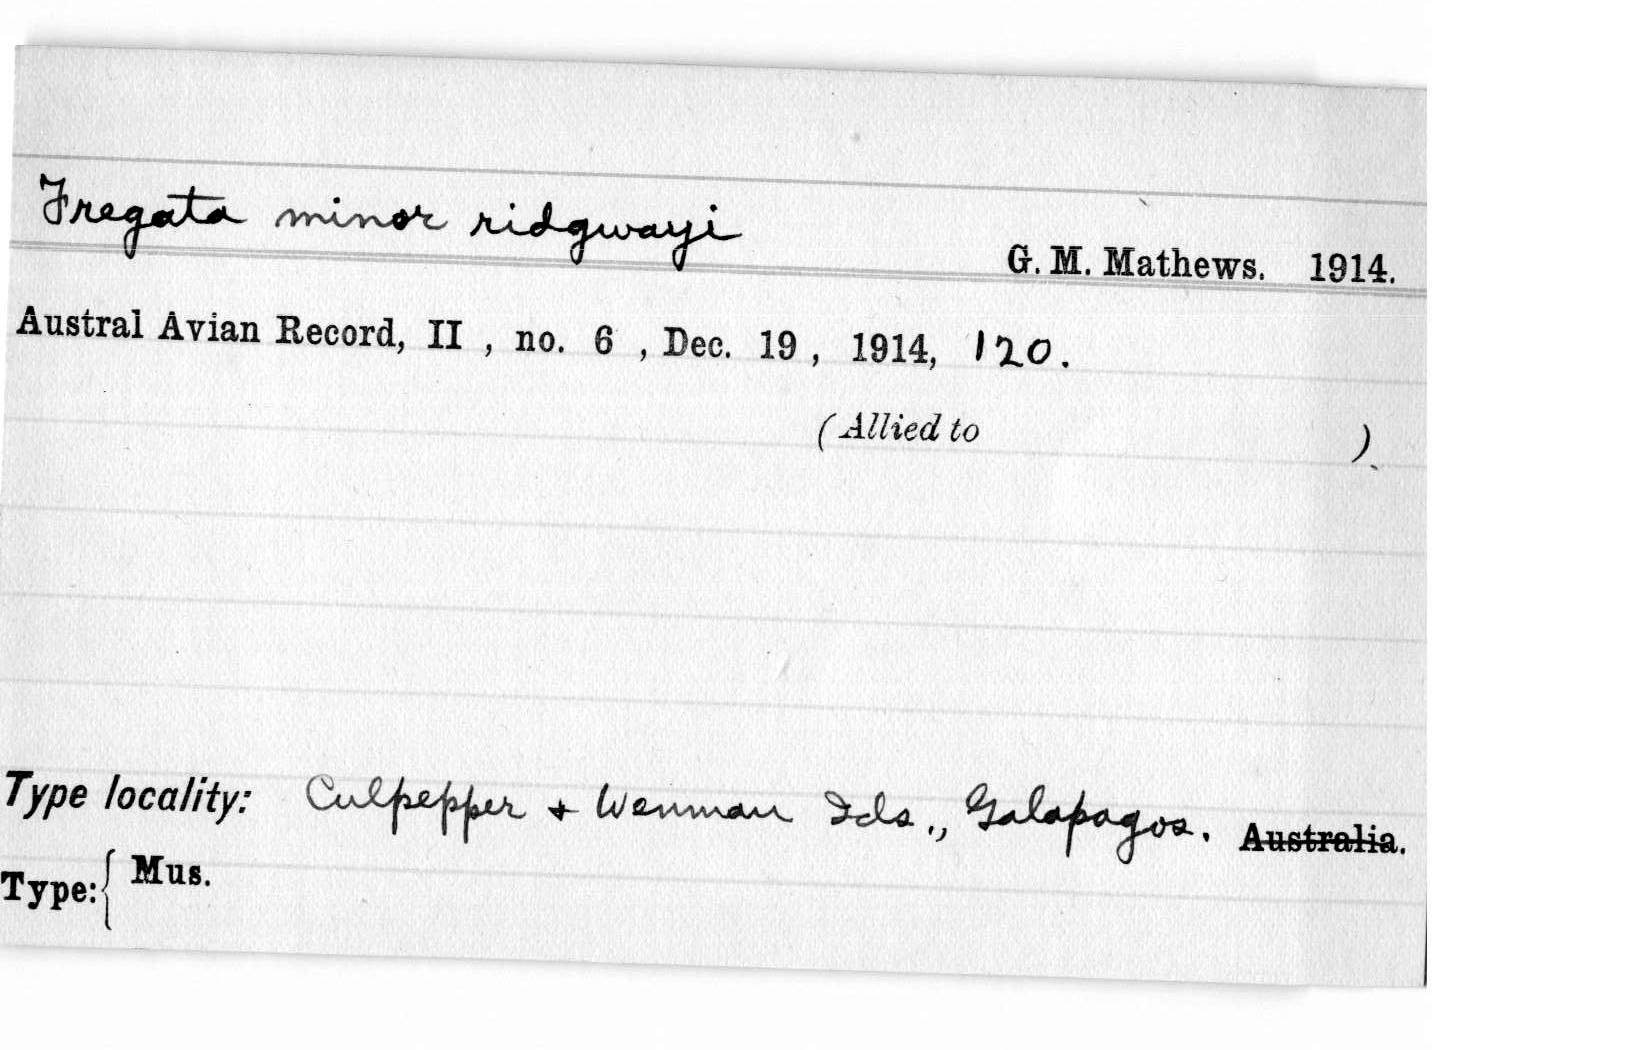 Fregata minor ridgwayi
G. M. Mathews. 1914.
Austral Avian Record, II , no. 6 , Dec. 19 , 1914, 120.
(Allied to )
Type locality: Culpepper + Wenman Ids., Galapagos. Australia.
Type: { Mus.